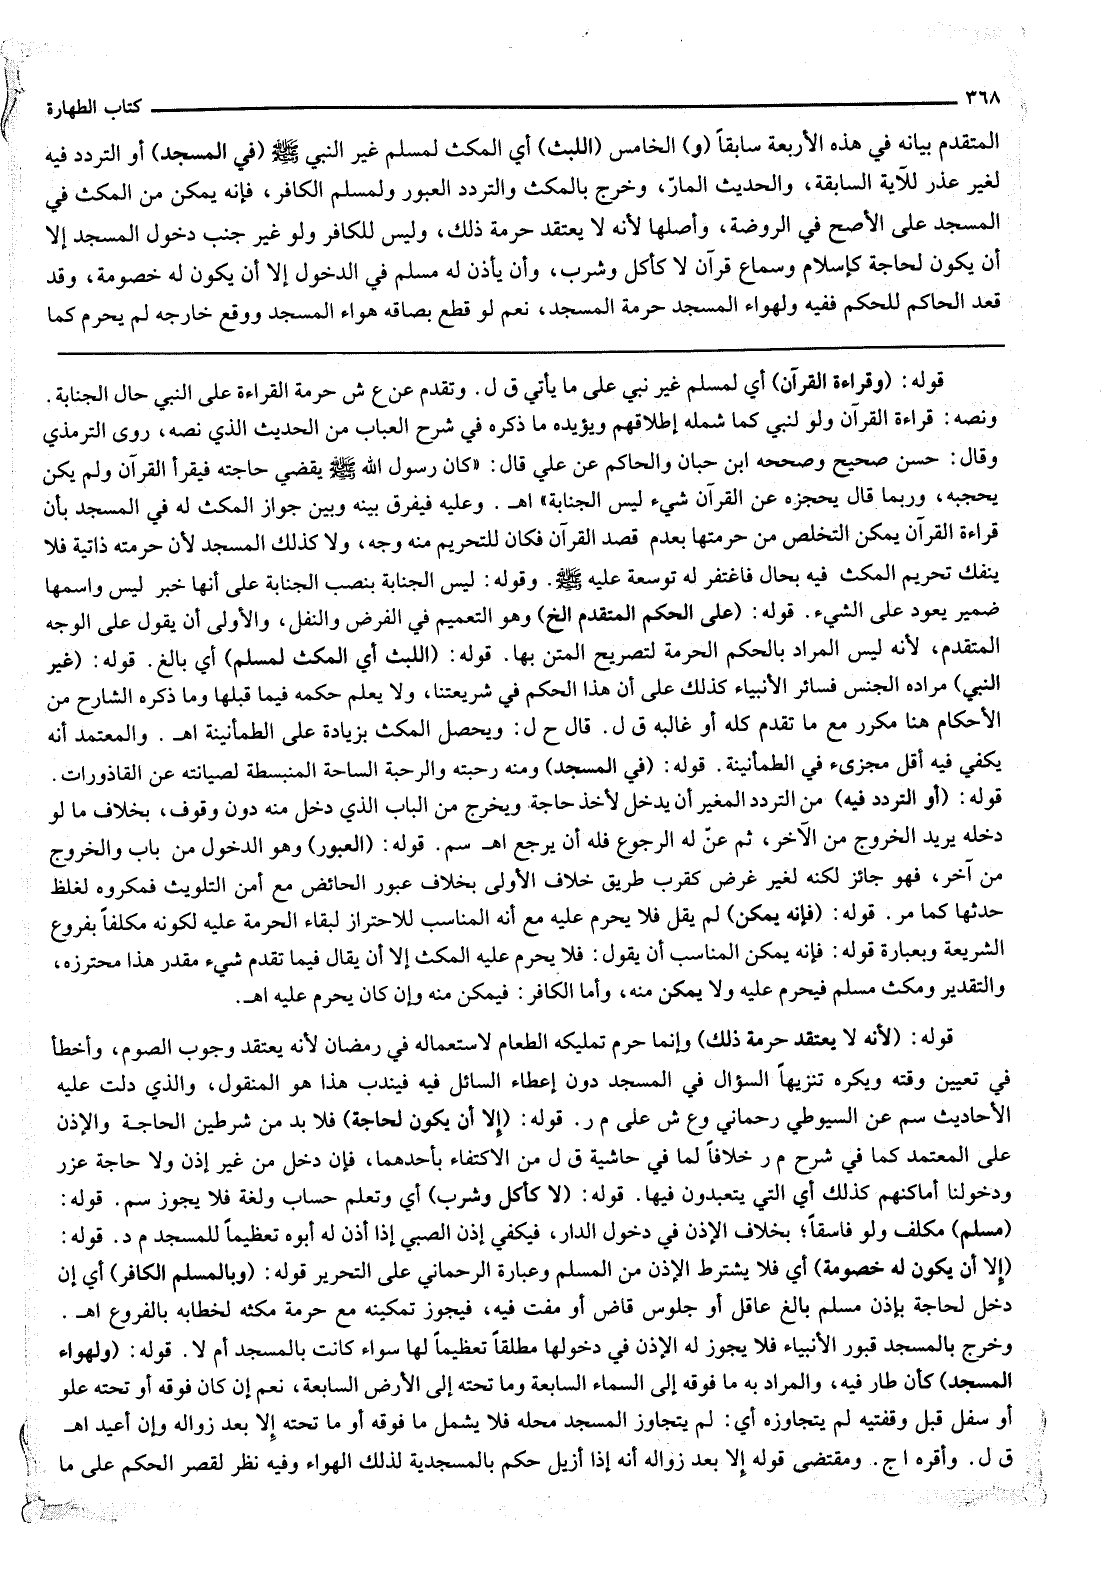 ٣٦٨ كتاب الطهارة
المتقدم بيانه في هذه الأربعة سابقاً (و) الخامس (اللبث) أي المكث لمسلم غير النبي ﷺ (في المسجد) أو التردد فيه
لغير عذر للآية السابقة، والحديث المارّ، وخرج بالمكث والتردد العبور ولمسلم الكافر، فإنه يمكن من المكث في
المسجد على الأصح في الروضة، وأصلها لأنه لا يعتقد حرمة ذلك، وليس للكافر ولو غير جنب دخول المسجد إلا
أن يكون لحاجة كإسلام وسماع قرآن لا كأكل وشرب، وأن يأذن له مسلم في الدخول إلا أن يكون له خصومة، وقد
قعد الحاكم للحكم ففيه ولهواء المسجد حرمة المسجد، نعم لو قطع بصاقه هواء المسجد ووقع خارجه لم يحرم كما
قوله: (وقراءة القرآن) أي لمسلم غير نبي على ما يأتي ق ل. وتقدم عن ع ش حرمة القراءة على النبي حال الجنابة.
ونصه: قراءة القرآن ولو لنبي كما شمله إطلاقهم ويؤيده ما ذكره في شرح العباب من الحديث الذي نصه، روى الترمذي
وقال: حسن صحيح وصححه ابن حبان والحاكم عن علي قال: «كان رسول الله ﷺ يقضي حاجته فيقرأ القرآن ولم يكن
يحجبه، وربما قال يحجزه عن القرآن شيء ليس الجنابة» اهـ. وعليه فيفرق بينه وبين جواز المكث له في المسجد بأن
قراءة القرآن يمكن التخلص من حرمتها بعدم قصد القرآن فكان للتحريم منه وجه، ولا كذلك المسجد لأن حرمته ذاتية فلا
ينفك تحريم المكث فيه بحال فاغتفر له توسعة عليه ﷺ. وقوله: ليس الجنابة بنصب الجنابة على أنها خبر ليس واسمها
ضمير يعود على الشيء. قوله: (على الحكم المتقدم الخ) وهو التعميم في الفرض والنفل، والأولى أن يقول على الوجه
المتقدم، لأنه ليس المراد بالحكم الحرمة لتصريح المتن بها. قوله: (اللبث أي المكث لمسلم) أي بالغ. قوله: (غير
النبي) مراده الجنس فسائر الأنبياء كذلك على أن هذا الحكم في شريعتنا، ولا يعلم حكمه فيما قبلها وما ذكره الشارح من
الأحكام هنا مكرر مع ما تقدم كله أو غالبه ق ل. قال ح ل: ويحصل المكث بزيادة على الطمأنينة اهـ. والمعتمد أنه
يكفي فيه أقل مجزىء في الطمأنينة. قوله: (في المسجد) ومنه رحبته والرحبة الساحة المنبسطة لصيانته عن القاذورات.
قوله: (أو التردد فيه) من التردد المغير أن يدخل لأخذ حاجة ويخرج من الباب الذي دخل منه دون وقوف، بخلاف ما لو
دخله يريد الخروج من الآخر، ثم عنّ له الرجوع فله أن يرجع اهـ سم. قوله: (العبور) وهو الدخول من باب والخروج
من آخر، فهو جائز لكنه لغير غرض كقرب طريق خلاف الأولى بخلاف عبور الحائض مع أمن التلويث فمكروه لغلظ
حدثها كما مر. قوله: (فإنه يمكن) لم يقل فلا يحرم عليه مع أنه المناسب للاحتراز لبقاء الحرمة عليه لكونه مكلفاً بفروع
الشريعة وبعبارة قوله: فإنه يمكن المناسب أن يقول: فلا يحرم عليه المكث إلا أن يقال فيما تقدم شيء مقدر هذا محترزه،
والتقدير ومكث مسلم فيحرم عليه ولا يمكن منه، وأما الكافر: فيمكن منه وإن كان يحرم عليه اهـ.
قوله: (لأنه لا يعتقد حرمة ذلك) وإنما حرم تمليكه الطعام لاستعماله في رمضان لأنه يعتقد وجوب الصوم، وأخطأ
في تعيين وقته ويكره تنزيهاً السؤال في المسجد دون إعطاء السائل فيه فيندب هذا هو المنقول، والذي دلت عليه
الأحاديث سم عن السيوطي رحماني وع ش على م ر. قوله: (إلا أن يكون لحاجة) فلا بد من شرطين الحاجة والإذن
على المعتمد كما في شرح م ر خلافاً لما في حاشية ق ل من الاكتفاء بأحدهما، فإن دخل من غير إذن ولا حاجة عزر
ودخولنا أماكنهم كذلك أي التي يتعبدون فيها. قوله: (لا كأكل وشرب) أي وتعلم حساب ولغة فلا يجوز سم. قوله:
(مسلم) مكلف ولو فاسقاً؛ بخلاف الإذن في دخول الدار، فيكفي إذن الصبي إذا أذن له أبوه تعظيماً للمسجد م د. قوله:
(إلا أن يكون له خصومة) أي فلا يشترط الإذن من المسلم وعبارة الرحماني على التحرير قوله: (وبالمسلم الكافر) أي إن
دخل لحاجة بإذن مسلم بالغ عاقل أو جلوس قاض أو مفت فيه، فيجوز تمكينه مع حرمة مكثه لخطابه بالفروع اهـ.
وخرج بالمسجد قبور الأنبياء فلا يجوز له الإذن في دخولها مطلقاً تعظيماً لها سواء كانت بالمسجد أم لا. قوله: (ولهواء
المسجد) كأن طار فيه، والمراد به ما فوقه إلى السماء السابعة وما تحته إلى الأرض السابعة، نعم إن كان فوقه أو تحته علو
أو سفل قبل وقفتيه لم يتجاوزه أي: لم يتجاوز المسجد محله فلا يشمل ما فوقه أو ما تحته إلا بعد زواله وإن أعيد اهـ
ق ل. وأقره ا ج. ومقتضى قوله إلا بعد زواله أنه إذا أزيل حكم بالمسجدية لذلك الهواء وفيه نظر لقصر الحكم على ما